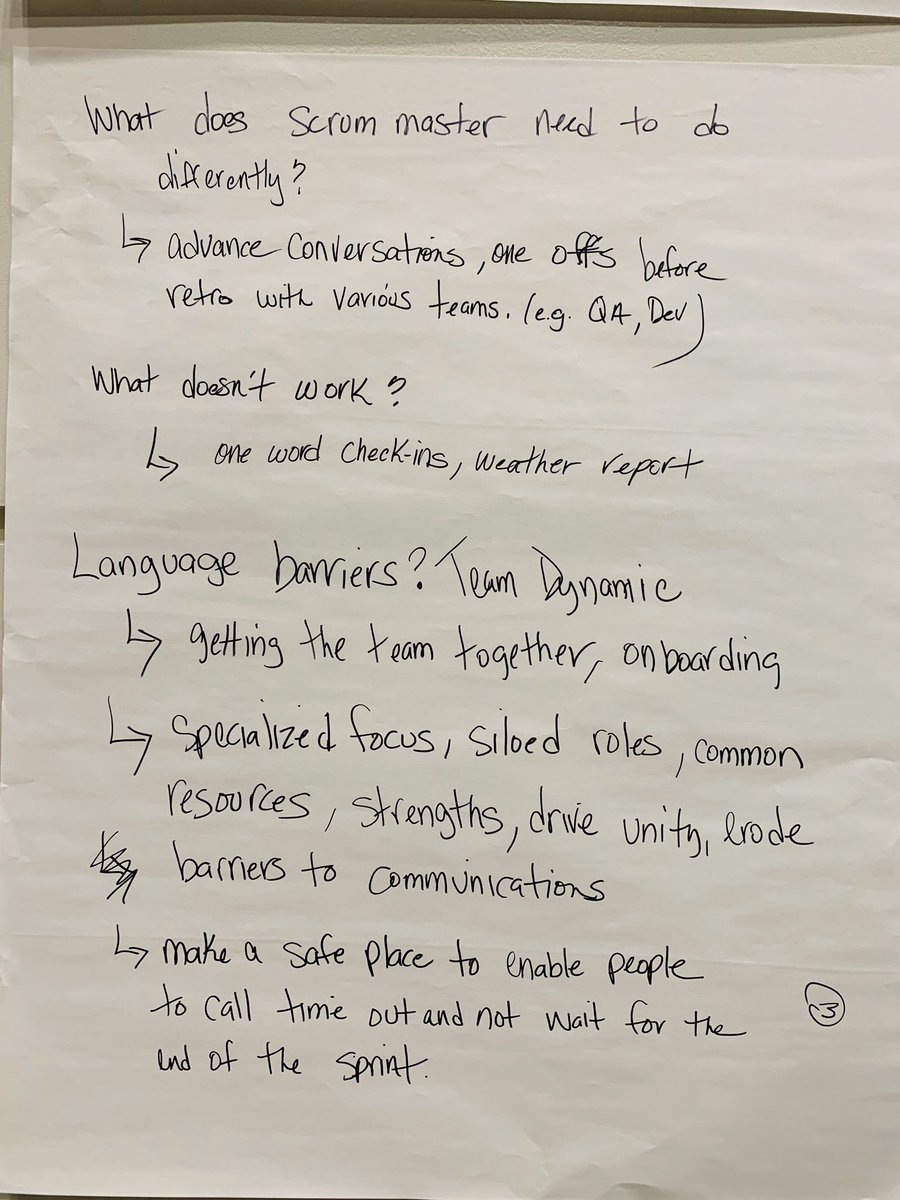 What does Scrum master need to do
differently?
↳ advance conversations, one offs before
retro with various teams. (e.g. QA, Dev)
What doesn't work?
↳ one word check-ins, weather report
Language barriers? Team Dynamic
↳ getting the team together, onboarding
↳ specialized focus, siloed roles, common
resources, strengths, drive unity, erode
barriers to communications
↳ make a safe place to enable people
to call time out and not wait for the
end of the sprint.
3